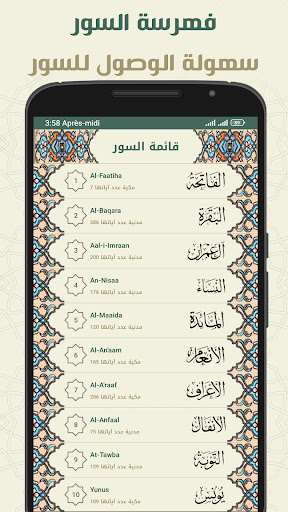 فهرسة السور
سهولة الوصول للسور
3:58 Après-midi
قائمة السور
1 Al-Faatiha الفاتحة
مكية عدد آياتها 7
2 Al-Baqara البقرة
مدنية عدد آياتها 286
3 Aal-i-Imraan آل عمران
مدنية عدد آياتها 200
4 An-Nisaa النساء
مدنية عدد آياتها 176
5 Al-Maaida المائدة
مدنية عدد آياتها 120
6 Al-An'aam الأنعام
مكية عدد آياتها 165
7 Al-A'raaf الأعراف
مكية عدد آياتها 206
8 Al-Anfaal الأنفال
مدنية عدد آياتها 75
9 At-Tawba التوبة
مدنية عدد آياتها 129
10 Yunus يونس
مكية عدد آياتها 109